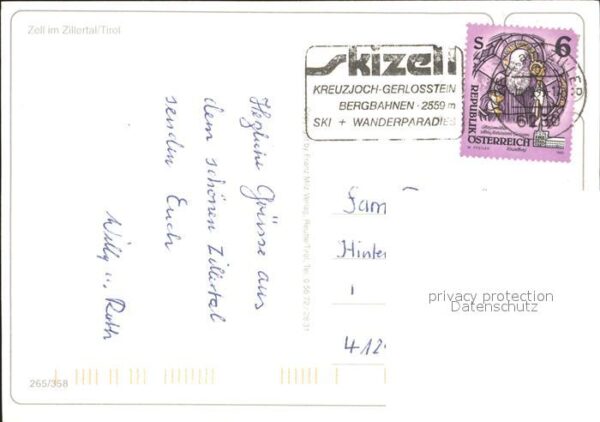 Zell im Zillertal/Tirol
skizell
KREUZJOCH-GERLOSSTEIN
BERGBAHNEN · 2559 m
SKI + WANDERPARADIES
S 6
REPUBLIK
ÖSTERREICH
Herzliche Grüsse aus
dem schönen Zillertal
senden Euch
Willy u. Ruth
by Franz Milz Verlag, Reutte/Tirol, Tel.
Fam
Hinter
1
412
privacy protection
Datenschutz
265/358